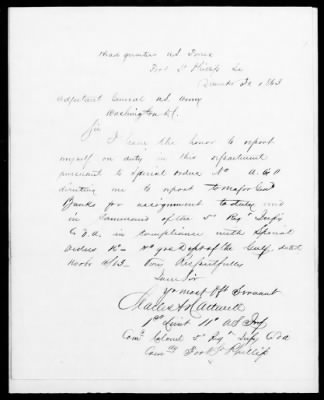 Head quarters U.S. Forces
Fort St Philip La
1863
Adjutant General U.S. Army
Washington D.C.
Sir
I have the honor to report
myself on duty in this department
pursuant to Special orders No A.G.O
directing me to report to Major Genl
Banks for assignment to duty and
in Command of the 5" Regt Infty
C.d.A. in compliance with Special
Orders No Dept of the Gulf, dated
Very Respectfully
Your
Yr most Obt Servant
Charles A Hartwell
1st Lieut 11" U S Inf
Com Colonel 5" Regt Infty C d a
Comdg Fort St Phillip